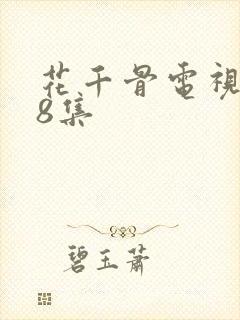 花千骨電視
8集
碧玉蕭